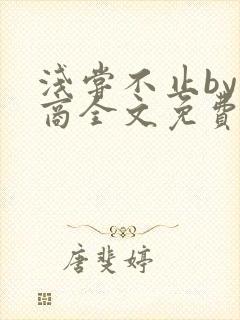 浅尝不止by
商全文免費
唐斐婷